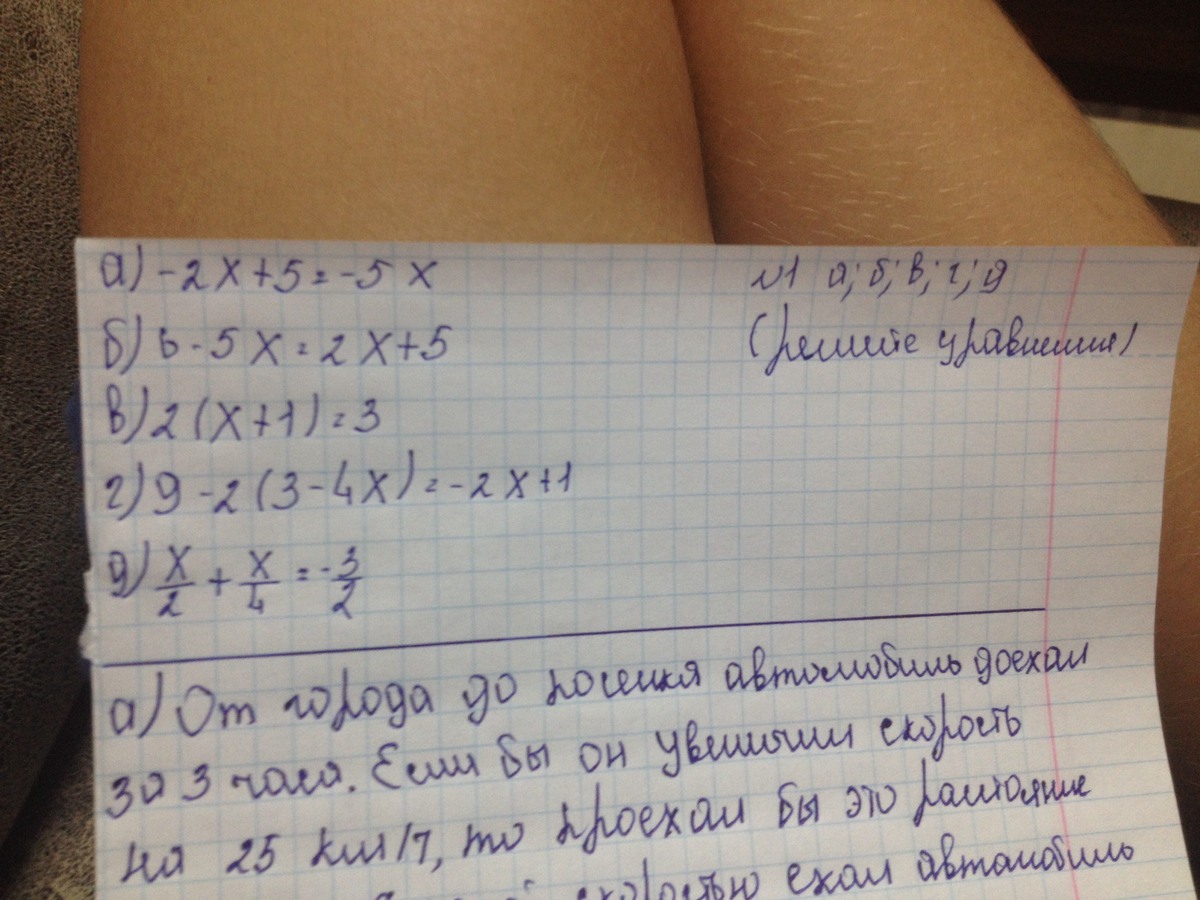 а) -2x+5=-5x
№1 а; б; в; г; д
б) 6-5x=2x+5
(решите уравнения)
в) 2(x+1)=3
г) 9-2(3-4x)=-2x+1
д) x/2 + x/4 = -3/2
а) От города до поселка автомобиль доехал
за 3 часа. Если бы он увеличил скорость
на 25 км/ч, то проехал бы это расстояние
скоростью ехал автомобиль